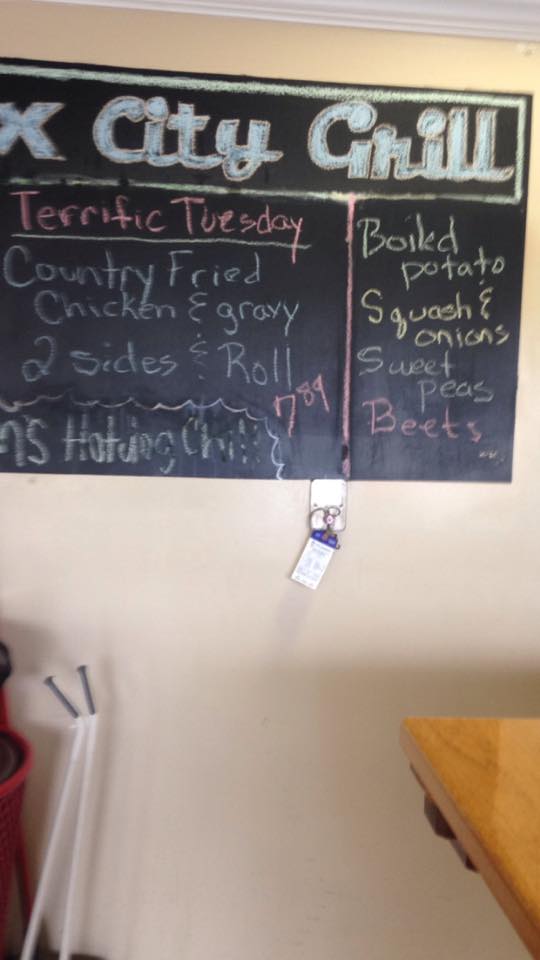 x City Grill
Terrific Tuesday
Country Fried
Chicken & gravy
2 sides & Roll
7 89
Hotdog Chili
Boiled
potato
Squash &
onions
Sweet
peas
Beets